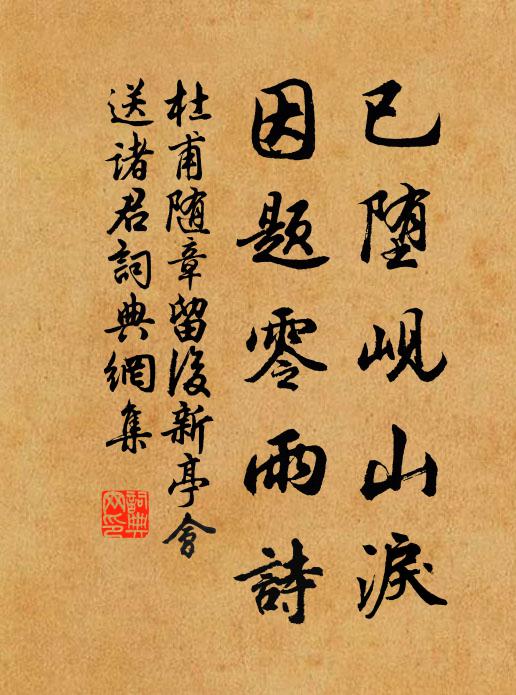 已堕岘山淚
因题零雨詩
杜甫随章留後新亭會
送諸君詞典網集
詞典
网印